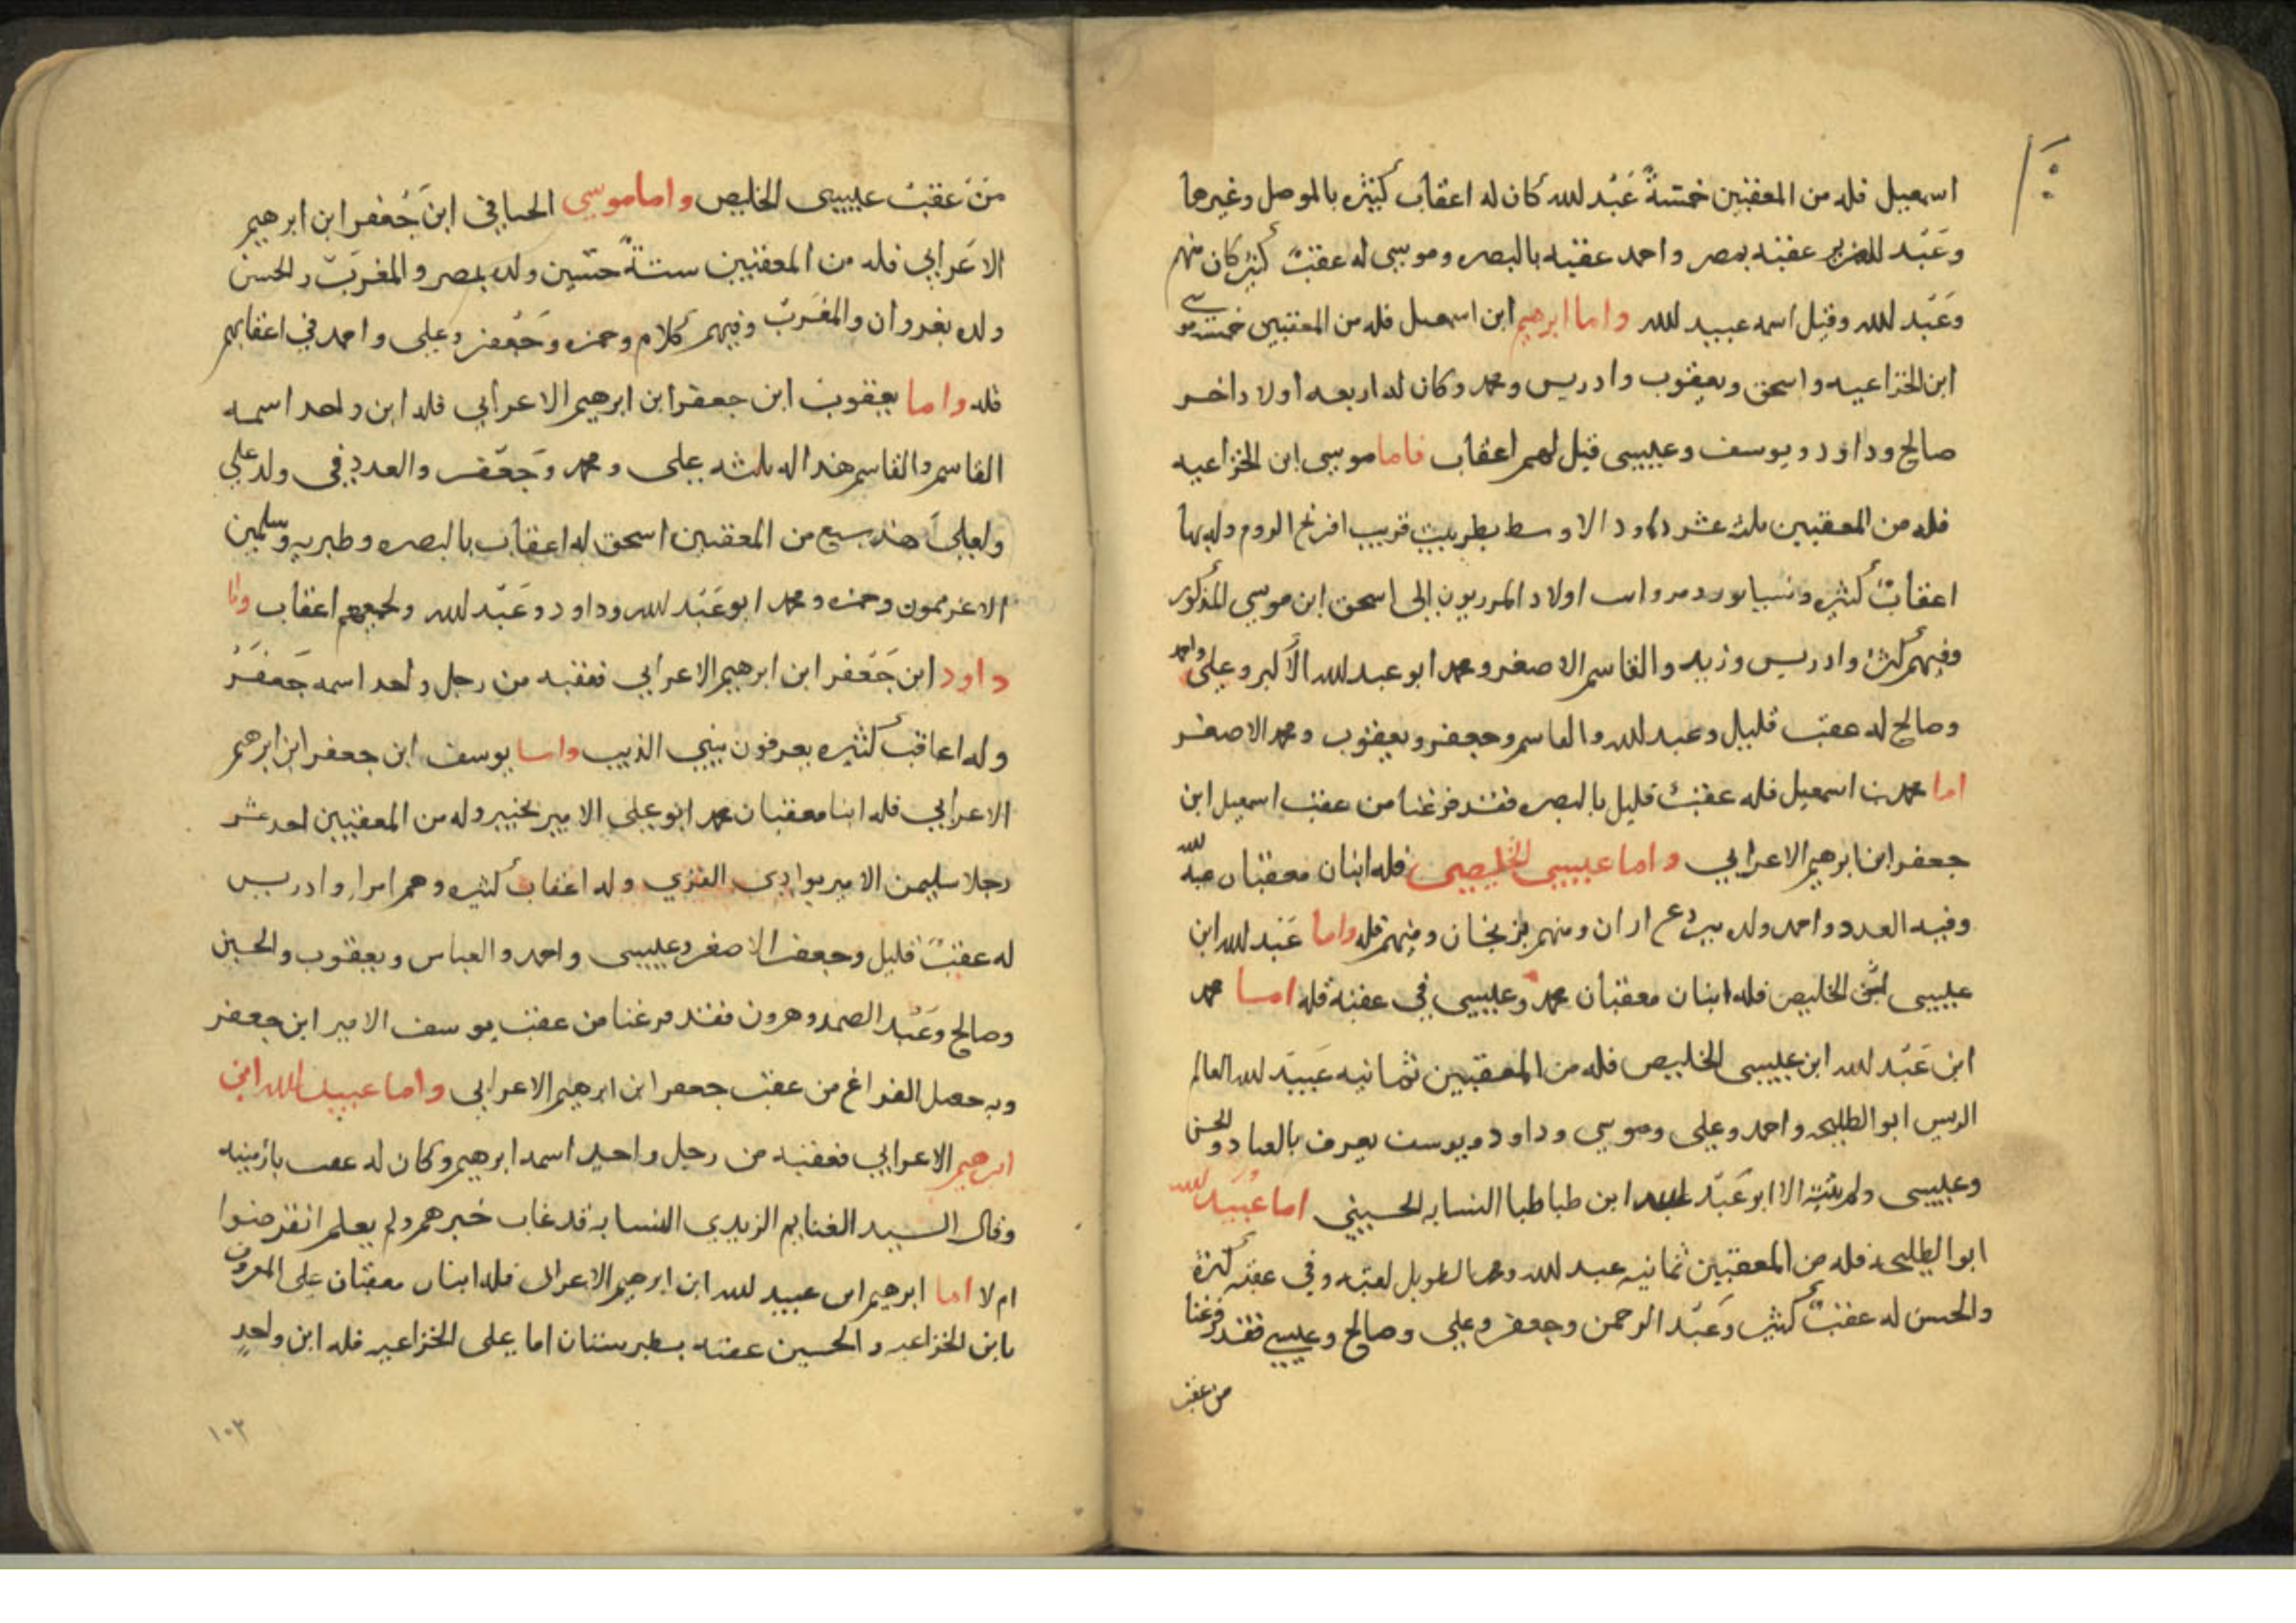 اسمعيل فله من المعقبين خمسة عَبْد لله كان له اعقاب كثيره بالموصل وغيرها
وعَبْد العزيز عقبه بمصر واحمد عقبه بالبصره وموسى له عقبٌ كثير كان منهم
وعَبْد لله وقيل اسمه عبيد لله واما ابرهيم ابن اسمعيل فله من المعقبين خمسه موسى
ابن الخزاعيه واسحق ويعقوب وادريس ومحمد وكان له اربعه اولاد اخر
صالح وداود ويوسف وعيسى قيل لهم اعقاب فاما موسى ابن الخزاعيه
فله من المعقبين ثلثه عشر داود الاوسط قريب افرنج الروم وله بها
اعقاب كثيره اولاد الى اسحق ابن موسى المذكور
وفيهم كثرة وادريس وزيد والقاسم الاصغر ومحمد ابو عبد لله الاكبر وعلي واحمد
وصالح له عقب قليل وعبد لله والقاسم وجعفر ويعقوب ومحمد الاصغر
اما محمد بن اسمعيل فله عقبٌ قليل بالبصره فقد فرغنا من عقب اسمعيل ابن
جعفر ابن ابرهيم الاعرابي واما عيسى الخليصي فله ابنان معقبان عبد لله
وفيه العدد واحمد ولده ببردع اران ومنهم بزنجان وفيهم قله واما عَبْد لله ابن
عيسى الخليص فله ابنان معقبان محمد وعيسى في عقبه قله اما محمد
ابن عَبْد لله ابن عيسى الخليص فله من المعقبين ثمانيه عُبيد لله العالم
الريس ابو الطليحه واحمد وعلي وموسى وداود ويوسف يعرف بالعباد والحسن
وعيسى ولم يثبته الا ابو عَبْد لله ابن طباطبا النسابه الحسيني اما عُبَيد لله
ابو الطليحه فله من المعقبين ثمانيه عبد لله ومحمد الطويل لعقبه وفي عقبه كثرة
والحسن له عقبٌ كثير وعَبْد الرحمن وجعفر وعلي وصالح وعيسى فقد فرغنا
من عقب
منْ عقبْ عيسى الخليص واما موسى ابن جَعْفر ابن ابرهيم
الاعَرابي فله من المعقبين ستةٌ حسين ولده بمصر والمغرب والحسن
ولده والمغرب وفيهم كلام وحمزه وجَعْفر وعلي واحمد في اعقابهم
قله واما يعقوب ابن جعفر ابن ابرهيم الاعرابي فله ابن واحد اسمه
القاسم والقاسم هذا له ثلثه علي ومحمد وجَعْفر والعدد في ولد علي
ولعلي هذا سبع من المعقبين اسحق له اعقاب بالبصره وطبريه وسليمن
وحمزه ومحمد ابو عَبْد لله وداود وعَبْد لله ولجميعهم اعقاب واما
داود ابن جَعْفر ابن ابرهيم الاعرابي فعقبه من رجل واحد اسمه جَعفَر
وله اعاقب كثيره يعرفون ببني الذيب واما يوسف ابن جعفر ابن ابرهيم
الاعرابي فله ابنا معقبان محمد ابو علي الامير بخيبر وله من المعقبين احد عشر
رجلا سليمن الامير بوادي القري وله اعقاب كثيره وهم امرا وادريس
له عقبٌ قليل وجعفر الاصغر وعيسى واحمد والعباس ويعقوب والحسين
وصالح وعَبْد الصمد وهرون فقد فرغنا من عقب يوسف الامير ابن جعفر
وبه حصل الفراغ من عقب جعفر ابن ابرهيم الاعرابي واما عبيد الله ابن
ابرهيم الاعرابي فعقبه من رجل واحد اسمه ابرهيم وكان له عقب بارمنيه
وقال السيد الغنايم الزيدي النسابه قد غاب خبرهم ولم يعلم انقرضوا
ام لا اما ابرهيم ابن عبيد لله ابن ابرهيم الاعرابي فله ابنان معقبان علي المعروف
بابن الخزاعيه والحسين عقبه بطبرستان اما علي الخزاعيه فله ابن واحد
١٠٣